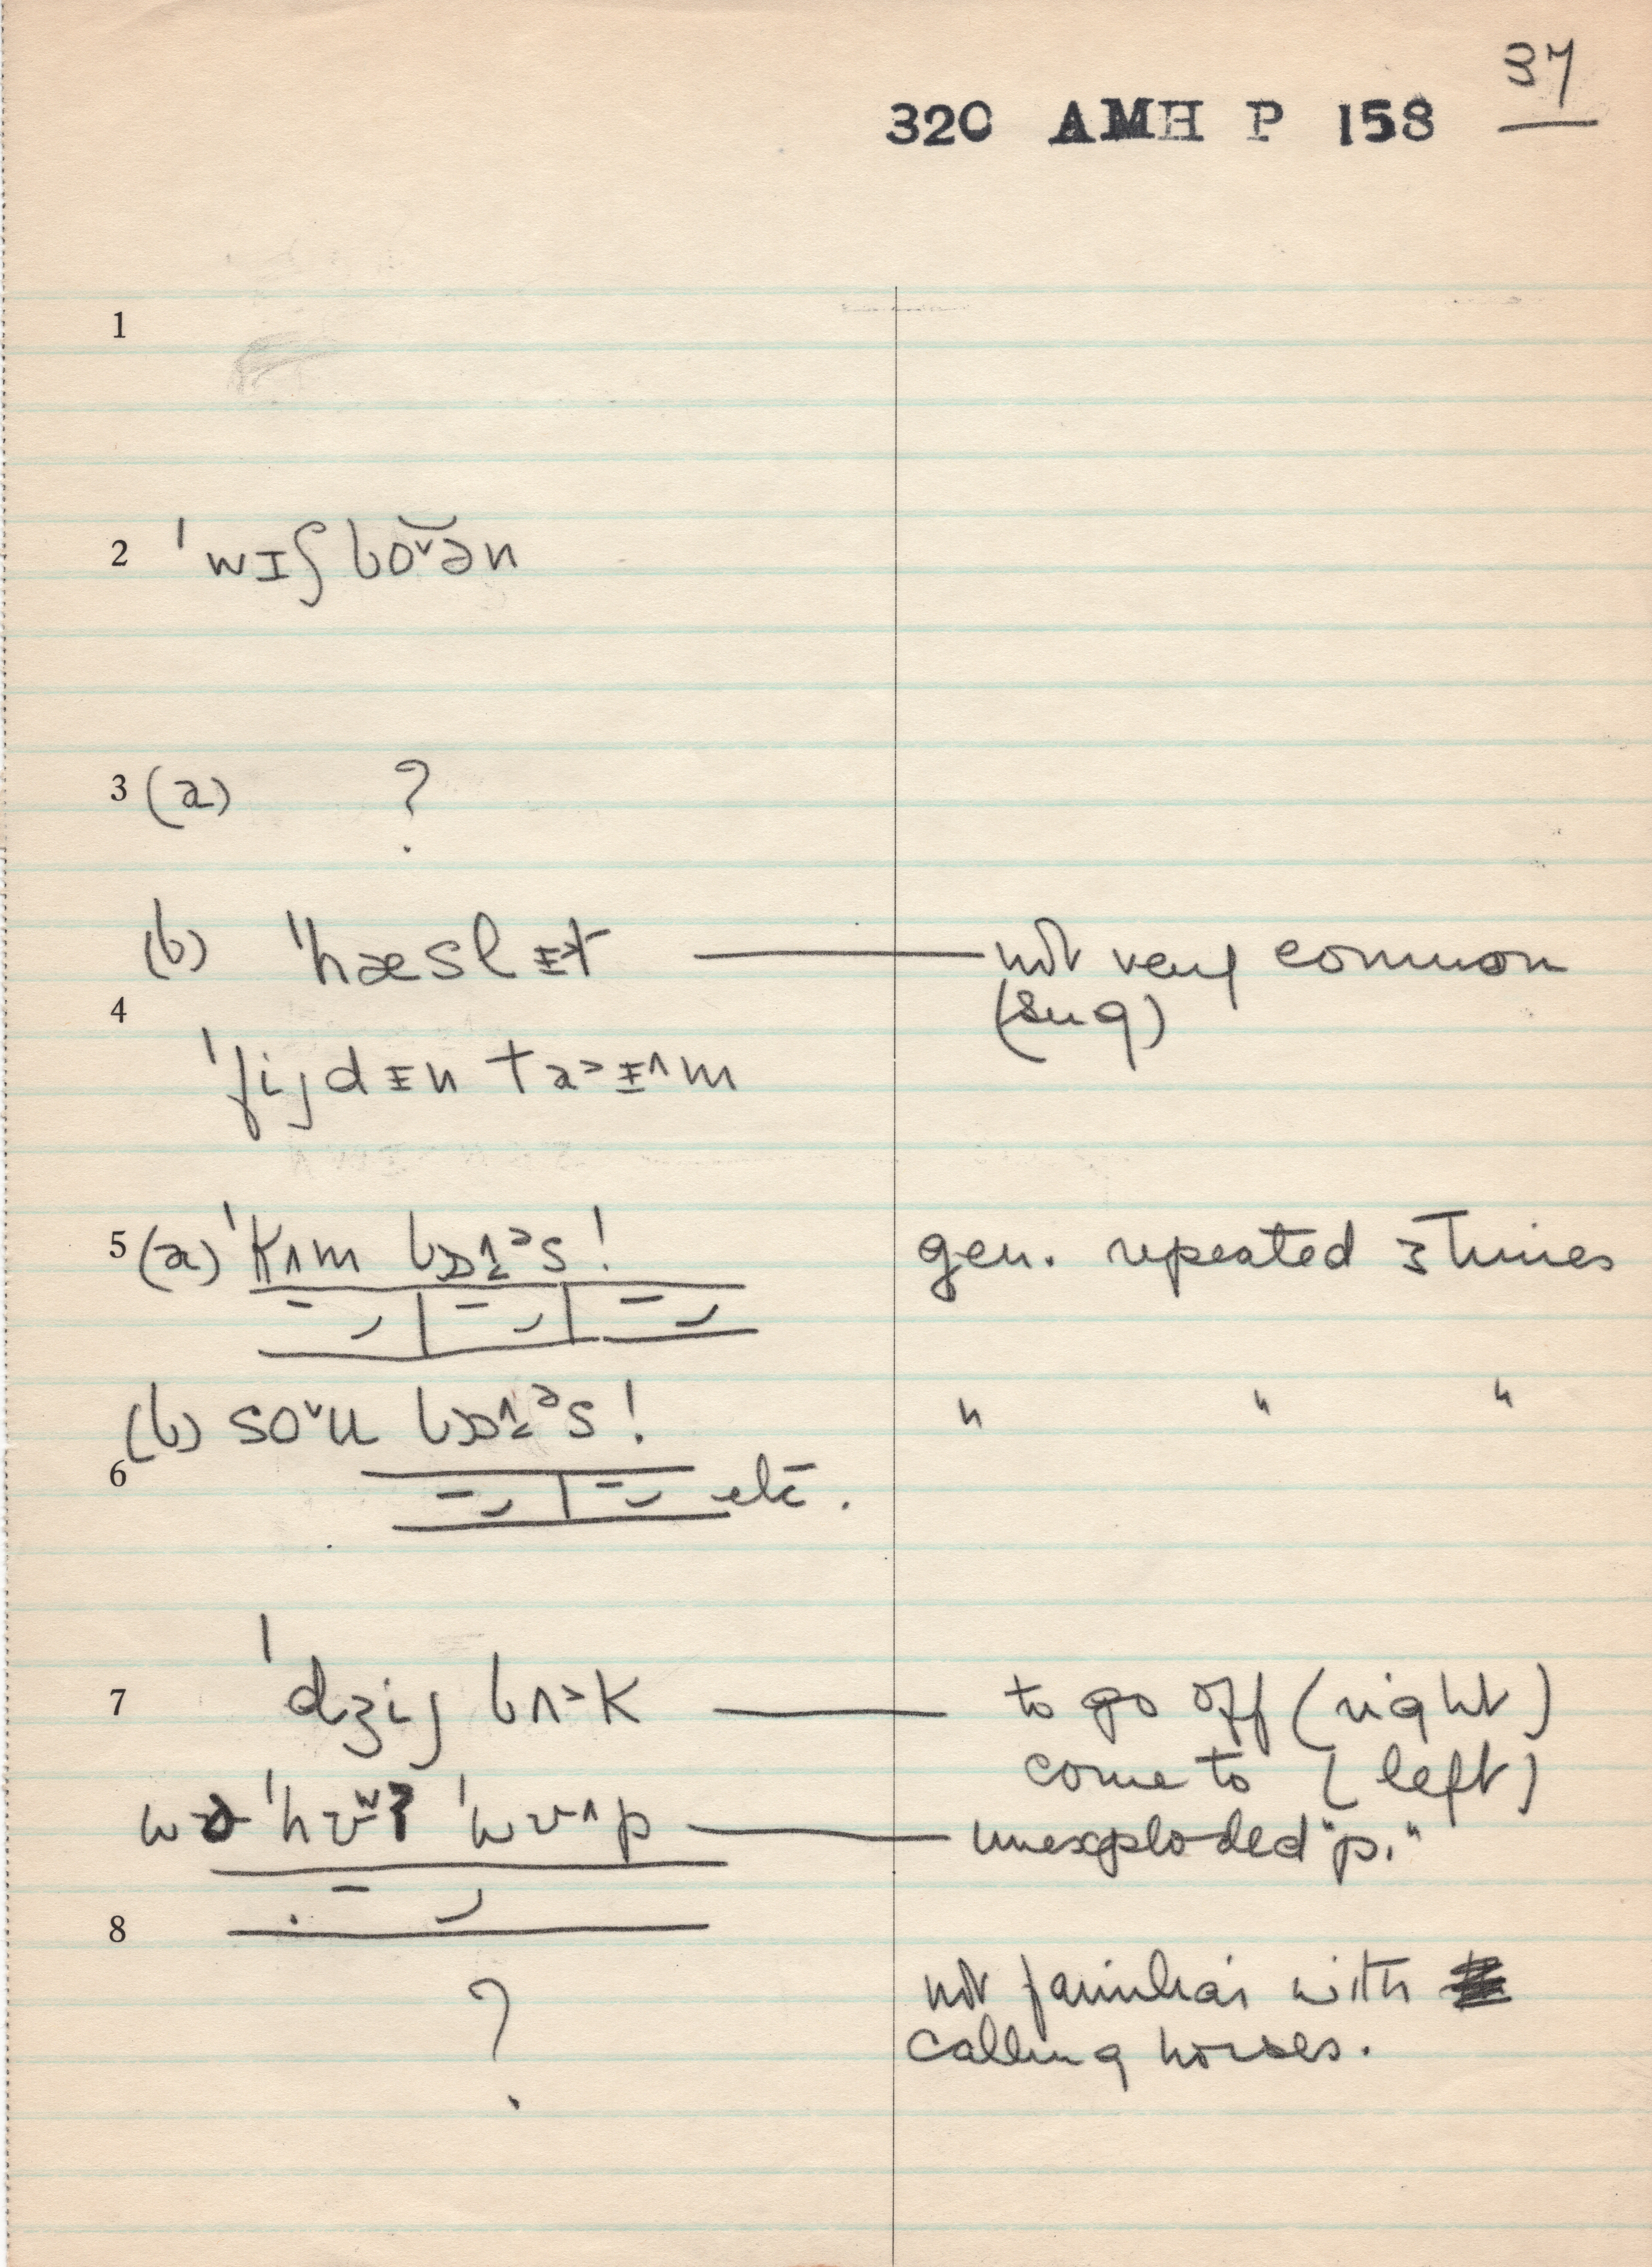 37
320 AMH P 158
1
2 ˈwɪʃboˇə̆n
3 (a) ?
(b) ˈhæslᵻt — not very common
(sug)
4
ˈfijdᵻn ta˃ᵻ˄m
5 (a) ˈkʌm bɒ˄ᵊs! gen. repeated 3 times
(b) soˇu bɒ˄ᵊs! " " "
6
etc.
7 ˈdʒij bʌ˃k — to go off (right)
come to (left)
ˈhwʊ˄p — unexploded "p."
8
? not familiar with
calling horses.